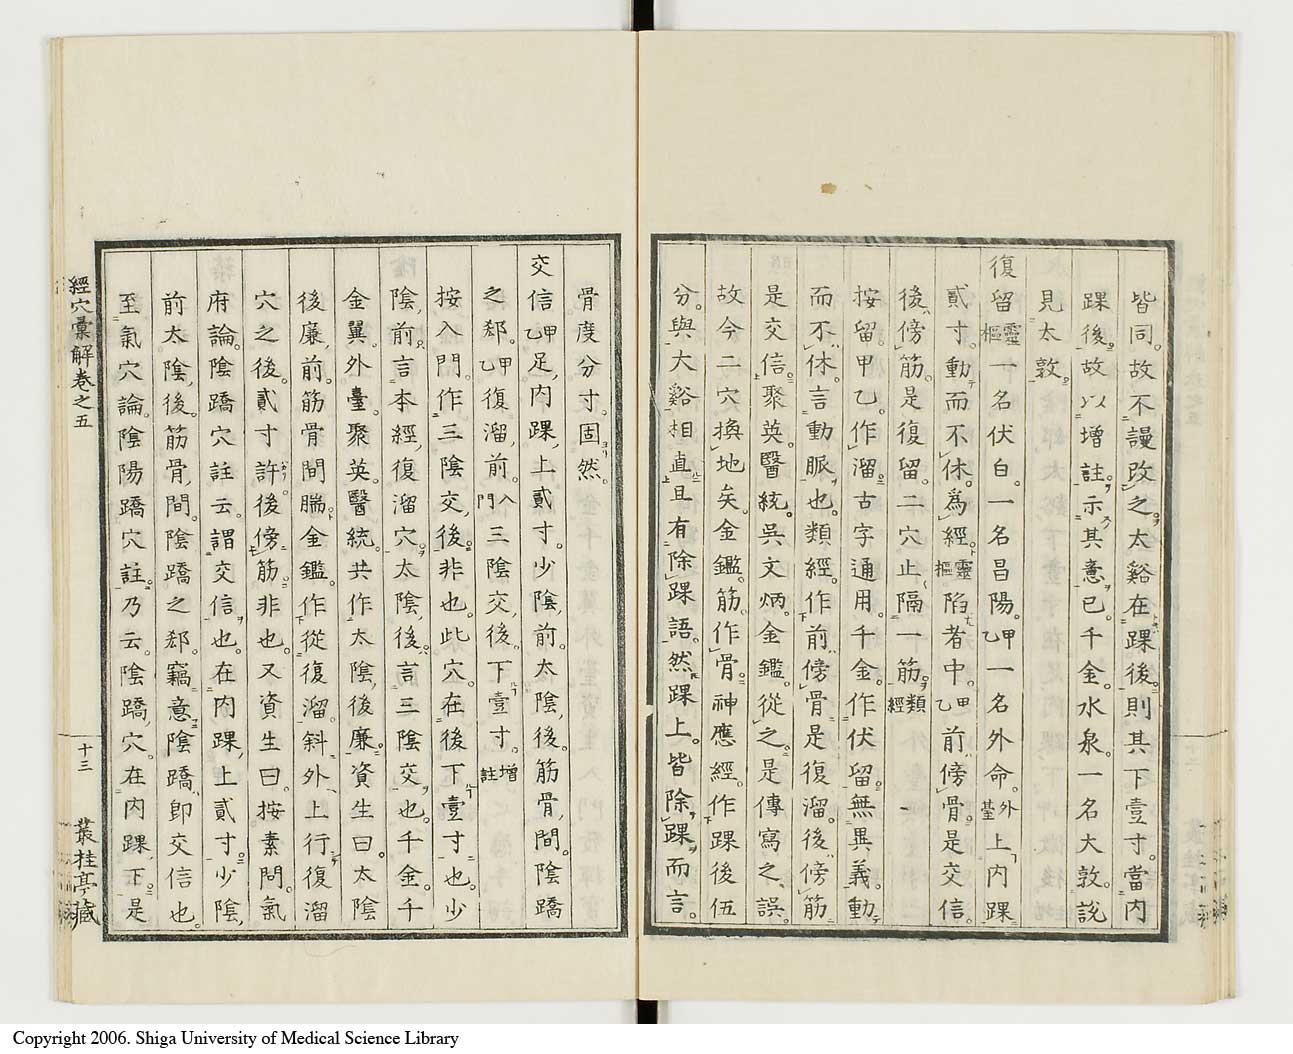 皆同。故不謾改之。太谿在踝後。則其下壹寸。當内
踝後。故以增註。示其意已。千金。水泉。一名大敦。說
見太敦。
復留靈樞一名伏白。一名昌陽。甲乙一名外命。外臺上内踝
貳寸。動而不休。爲經。靈樞陷者中。甲乙前傍骨。是交信。
後傍筋。是復留。二穴止隔一筋。類經
按留。甲乙作溜。古字通用。千金作伏留。無異義。動
而不休。言動脈也。類經作前傍骨是復溜。後傍筋
是交信。聚英。醫統。吳文炳。金鑑。從之。是傳寫之誤。
故今二穴換地矣。金鑑。筋作骨。神應經。作踝後伍
分。與大谿相直。且有除踝語。然踝上。皆除踝而言。
骨度分寸。固然。
交信甲乙足内踝上貳寸。少陰前。太陰後。筋骨間。陰蹻
之郄。甲乙復溜前。入門三陰交後。下壹寸。增註
按入門。作三陰交後。非也。此穴。在後下壹寸也。少
陰前。言本經復溜穴。太陰後。言三陰交也。千金。千
金翼。外臺。聚英。醫統。共作太陰後廉。資生曰。太陰
後廉前。筋骨間腨。金鑑。作從復溜斜外上行。復溜
穴之後。貳寸許。後傍筋。非也。又資生曰。按素問。氣
府論。陰蹻穴註云。謂交信也。在内踝上貳寸。少陰
前太陰後。筋骨間。陰蹻之郄。竊意陰蹻。卽交信也。
至氣穴論。陰陽蹻穴註。乃云。陰蹻穴。在内踝下。是
經穴彙解卷之五
十三
叢桂亭藏
Copyright 2006. Shiga University of Medical Science Library